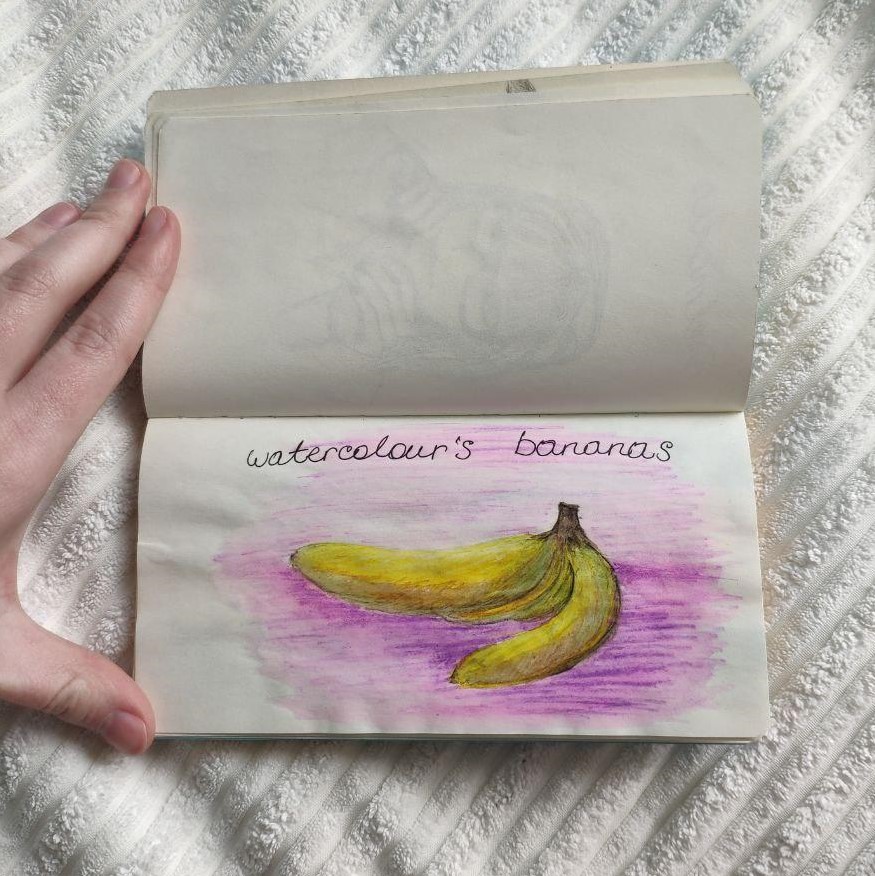 watercolour's bananas